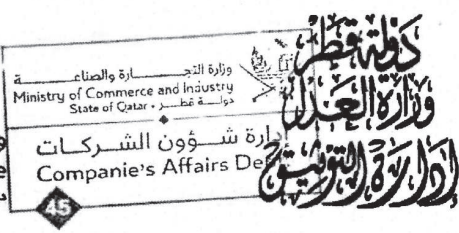 وزارة التجـــــارة والصناعـــــــة
Ministry of Commerce and Industry
State of Qatar • دولـــة قطـــر
دارة شـــؤون الشـــركـــات
Companie's Affairs De
45
دولة قطر
وزارة العدل
إدارة التوثيق